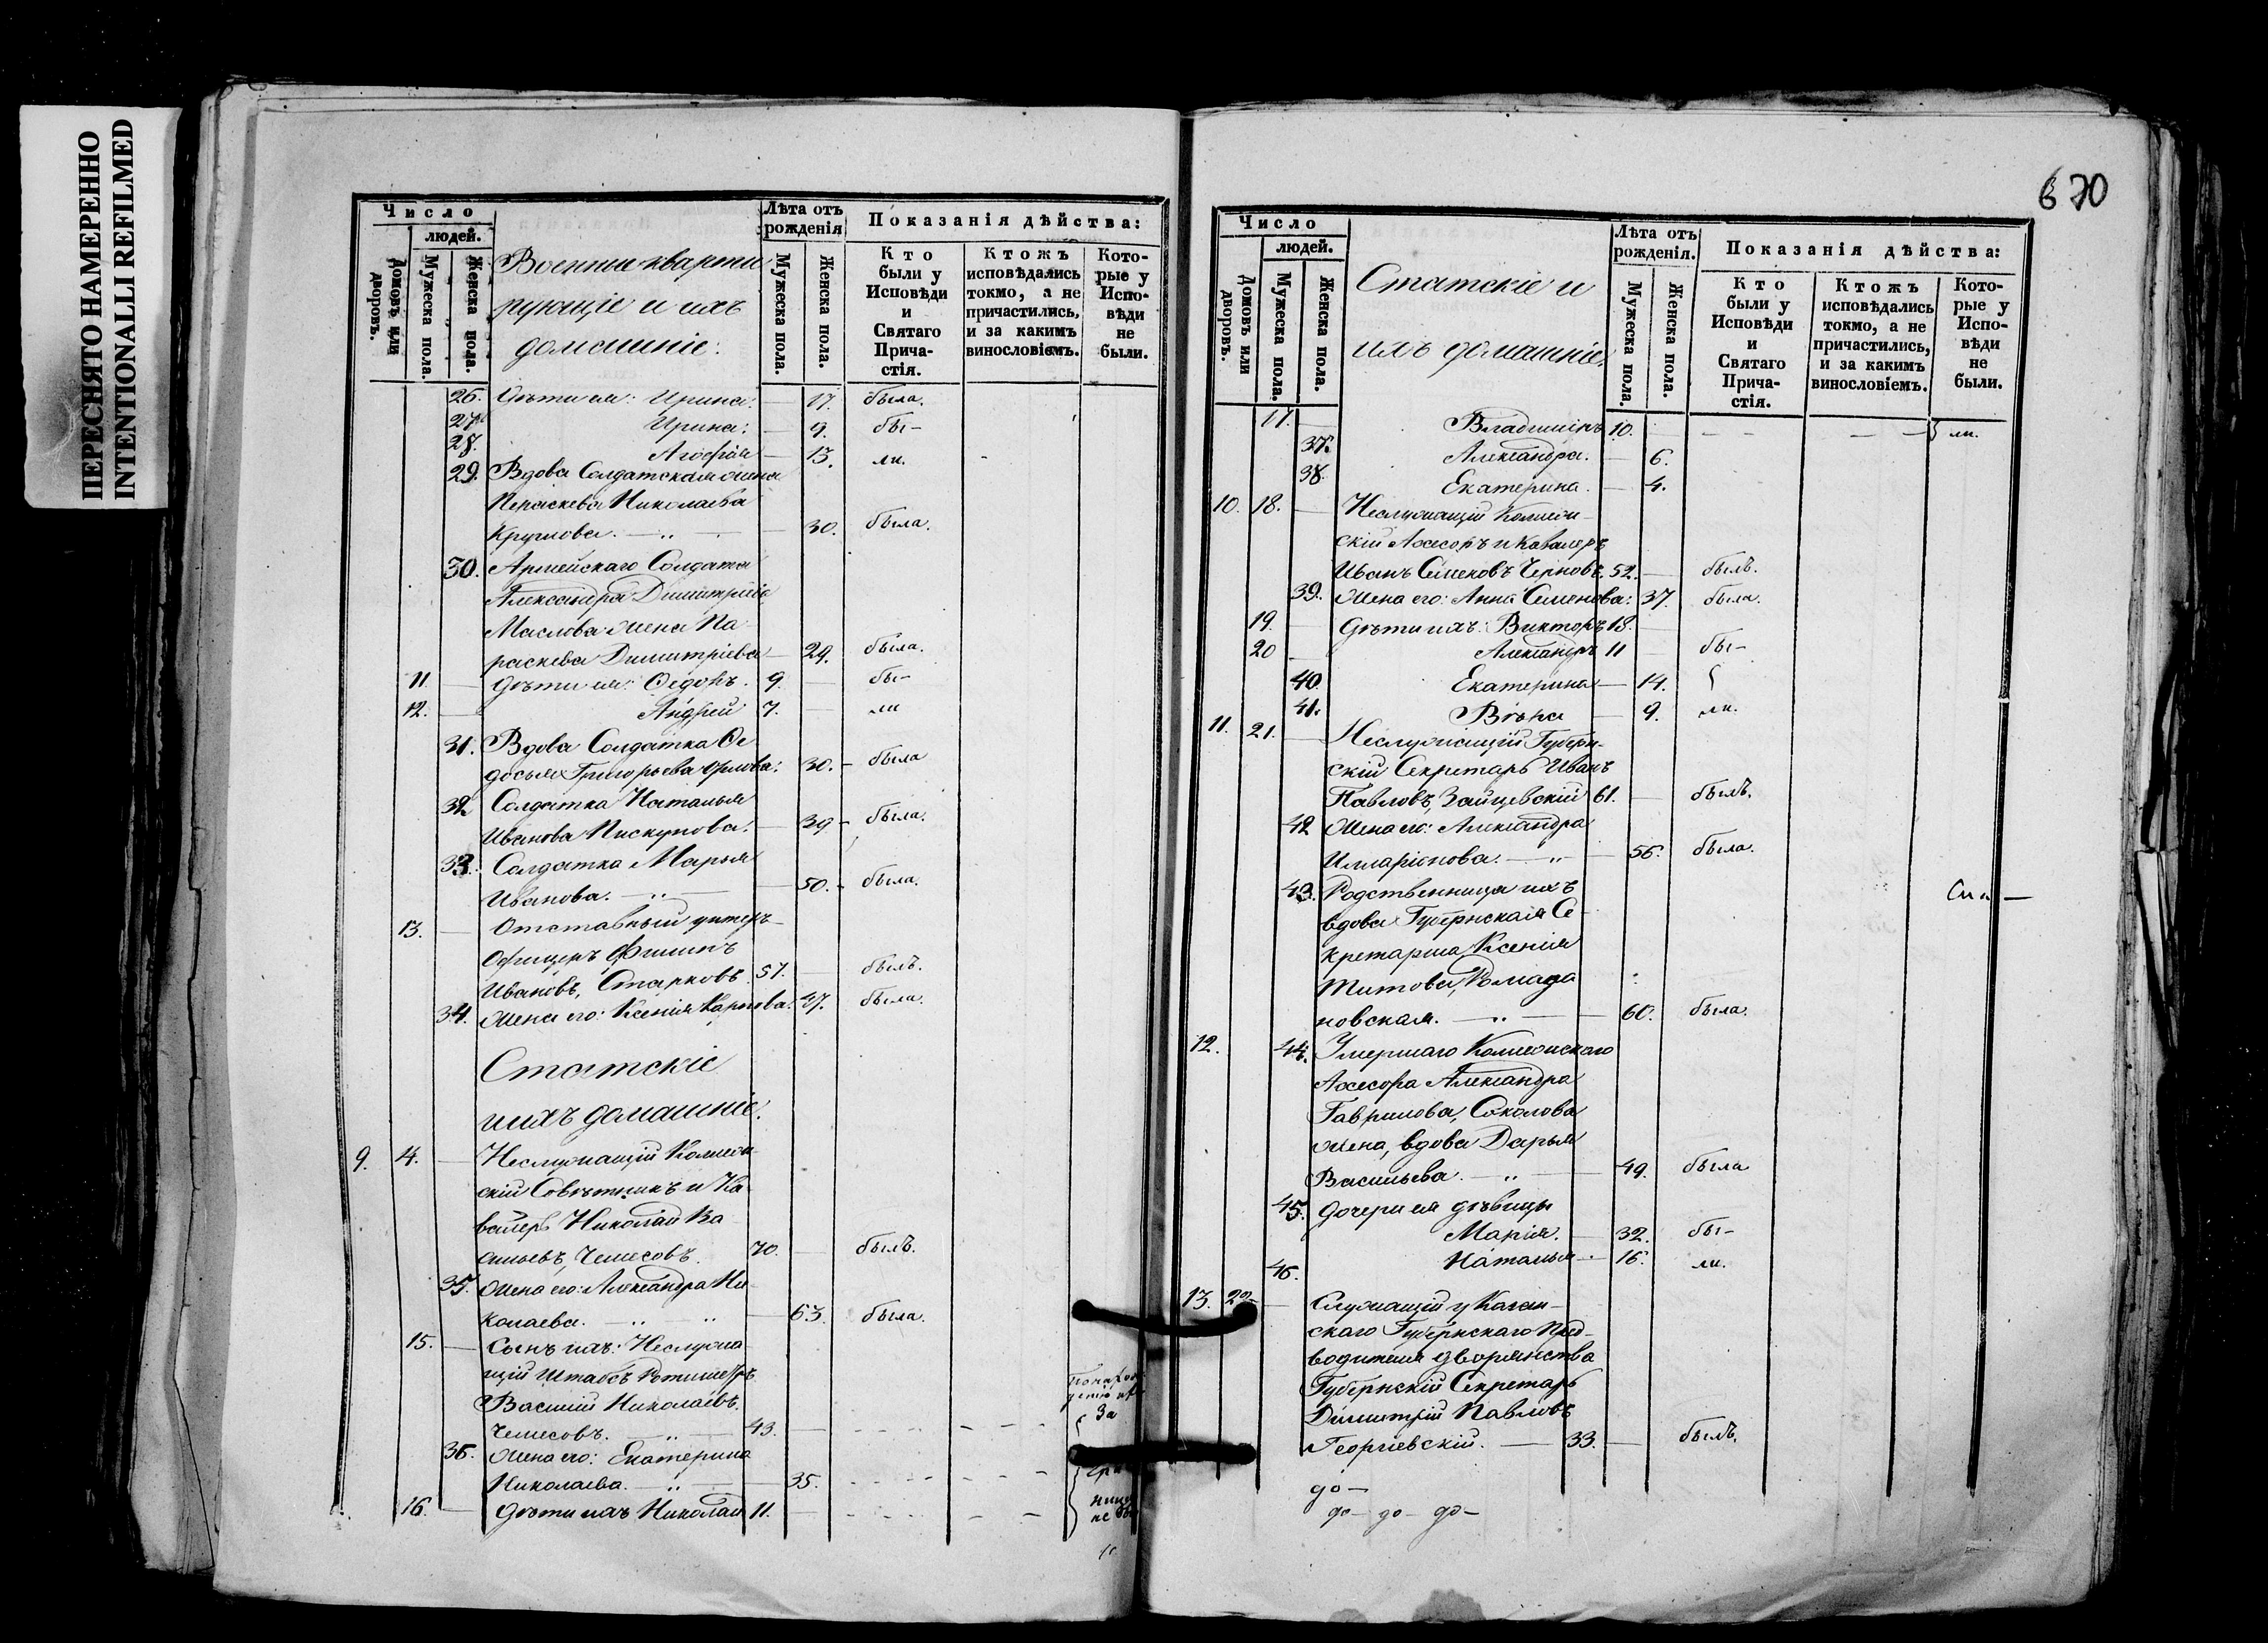 ПЕРЕСНЯТО НАМЕРЕННО
INTENTIONALLI REFILMED
Число
людей.
Домовъ или дворовъ.
Мужеска пола.
Женска пола.
Военные кварти
рующіе и ихъ
домашніе:
Лѣта отъ рожденія
Мужеска пола.
Женска пола.
Показанія дѣйства:
Кто были у Исповѣди и Святаго Прича-стія.
Ктожъ исповѣдались токмо, а не причастились, и за какимъ винословіемъ.
Кото-рые у Испо-вѣди не были.
26. Дѣти ея: Ирина. — 17. была.
27. Ирина: — 9. бы-
28. Агафія — 13. ли.
29. Вдова Солдатская жена
Параскева Николаева
Круглова. — „ — 30. была.
30. Армейскаго Солдата
Александра Димитріева
Маслова жена Па
раскева Димитріева — 29. была.
11 — Дѣти ея: Ѳедоръ. 9. — бы-
12. — Андрей 7. — ли
31. Вдова Солдатка Ѳе
досья Григорьева Орлова: 30. - была
32 Солдатка Наталья
Иванова Пискунова. — 39 - была.
33. Солдатка Марья
Иванова. — „ — 50. - была.
13. — Отставный унтеръ-
Офицеръ Филипъ
Ивановъ, Старковъ. 57. — былъ.
34. Жена его: Ксенія Карпова: 47. была.
Статскіе
и ихъ домашніе.
9. 14. — Неслужащій Коллеж-
скій Совѣтникъ и Ка-
валеръ Николай Ва
сильевъ, Чемесовъ. 70. — былъ.
35. Жена его: Александра Ни-
колаева. — „ „ — 63. была.
15. — Сынъ ихъ: Неслужа
щій Штабсъ Ротмистръ
Василій Николаевъ.
Чемесовъ. — „ — 43. —
За
36. Жена его: Екатерина
Николаева. — „ — 35.
16. — Дѣти ихъ Николай 11. —
670
Число
людей.
Домовъ или дворовъ.
Мужеска пола.
Женска пола.
Статскіе и
ихъ домашніе.
Лѣта отъ рожденія.
Мужеска пола
Женска пола.
Показанія дѣйства:
Кто были у Исповѣди и Святаго Прича-стія.
Ктожъ исповѣдались токмо, а не причастились, и за какимъ винословіемъ.
Кото-рые у Испо-вѣди не были.
17. — Владиміръ 10. — ли.
37. Александра. — 6.
38. Екатерина. — 4.
10. 18. — Неслужащій Коллеж-
скій Асесоръ и Кавалеръ
Иванъ Семеновъ Черновъ. 52. — былъ.
39. Жена его: Анна Семенова: 37. была.
19. — Дѣти ихъ: Викторъ 18. —
20 — Александръ 11 — бы-
40. Екатерина — 14.
41. Вѣра — 9. ли.
11. 21. — Неслужащій Губерн-
скій Секретарь Иванъ
Павловъ, Зайцевскій 61. — былъ.
42 Жена его: Александра
Илларіонова. — „ — 56. была.
43. Родственница ихъ
вдова Губернская Се-
кретарша Ксенія
Титова,
новская. — „ — 60. была.
12. 44. Умершаго Коллежскаго
Асесора Александра
Гаврилова, Соколова
жена, вдова Дарья
Васильева. — „ — 49. была
45. Дочери ея дѣвицы
Марія. — 32. бы-
46. Наталья — 16. ли.
13. 22 — Служащій у Казан-
скаго Губернскаго Пред-
водителя дворянства
Губернскій Секретарь
Димитрій Павловъ
Георгіевскій. — 33. — былъ.
до-
до- до- до-